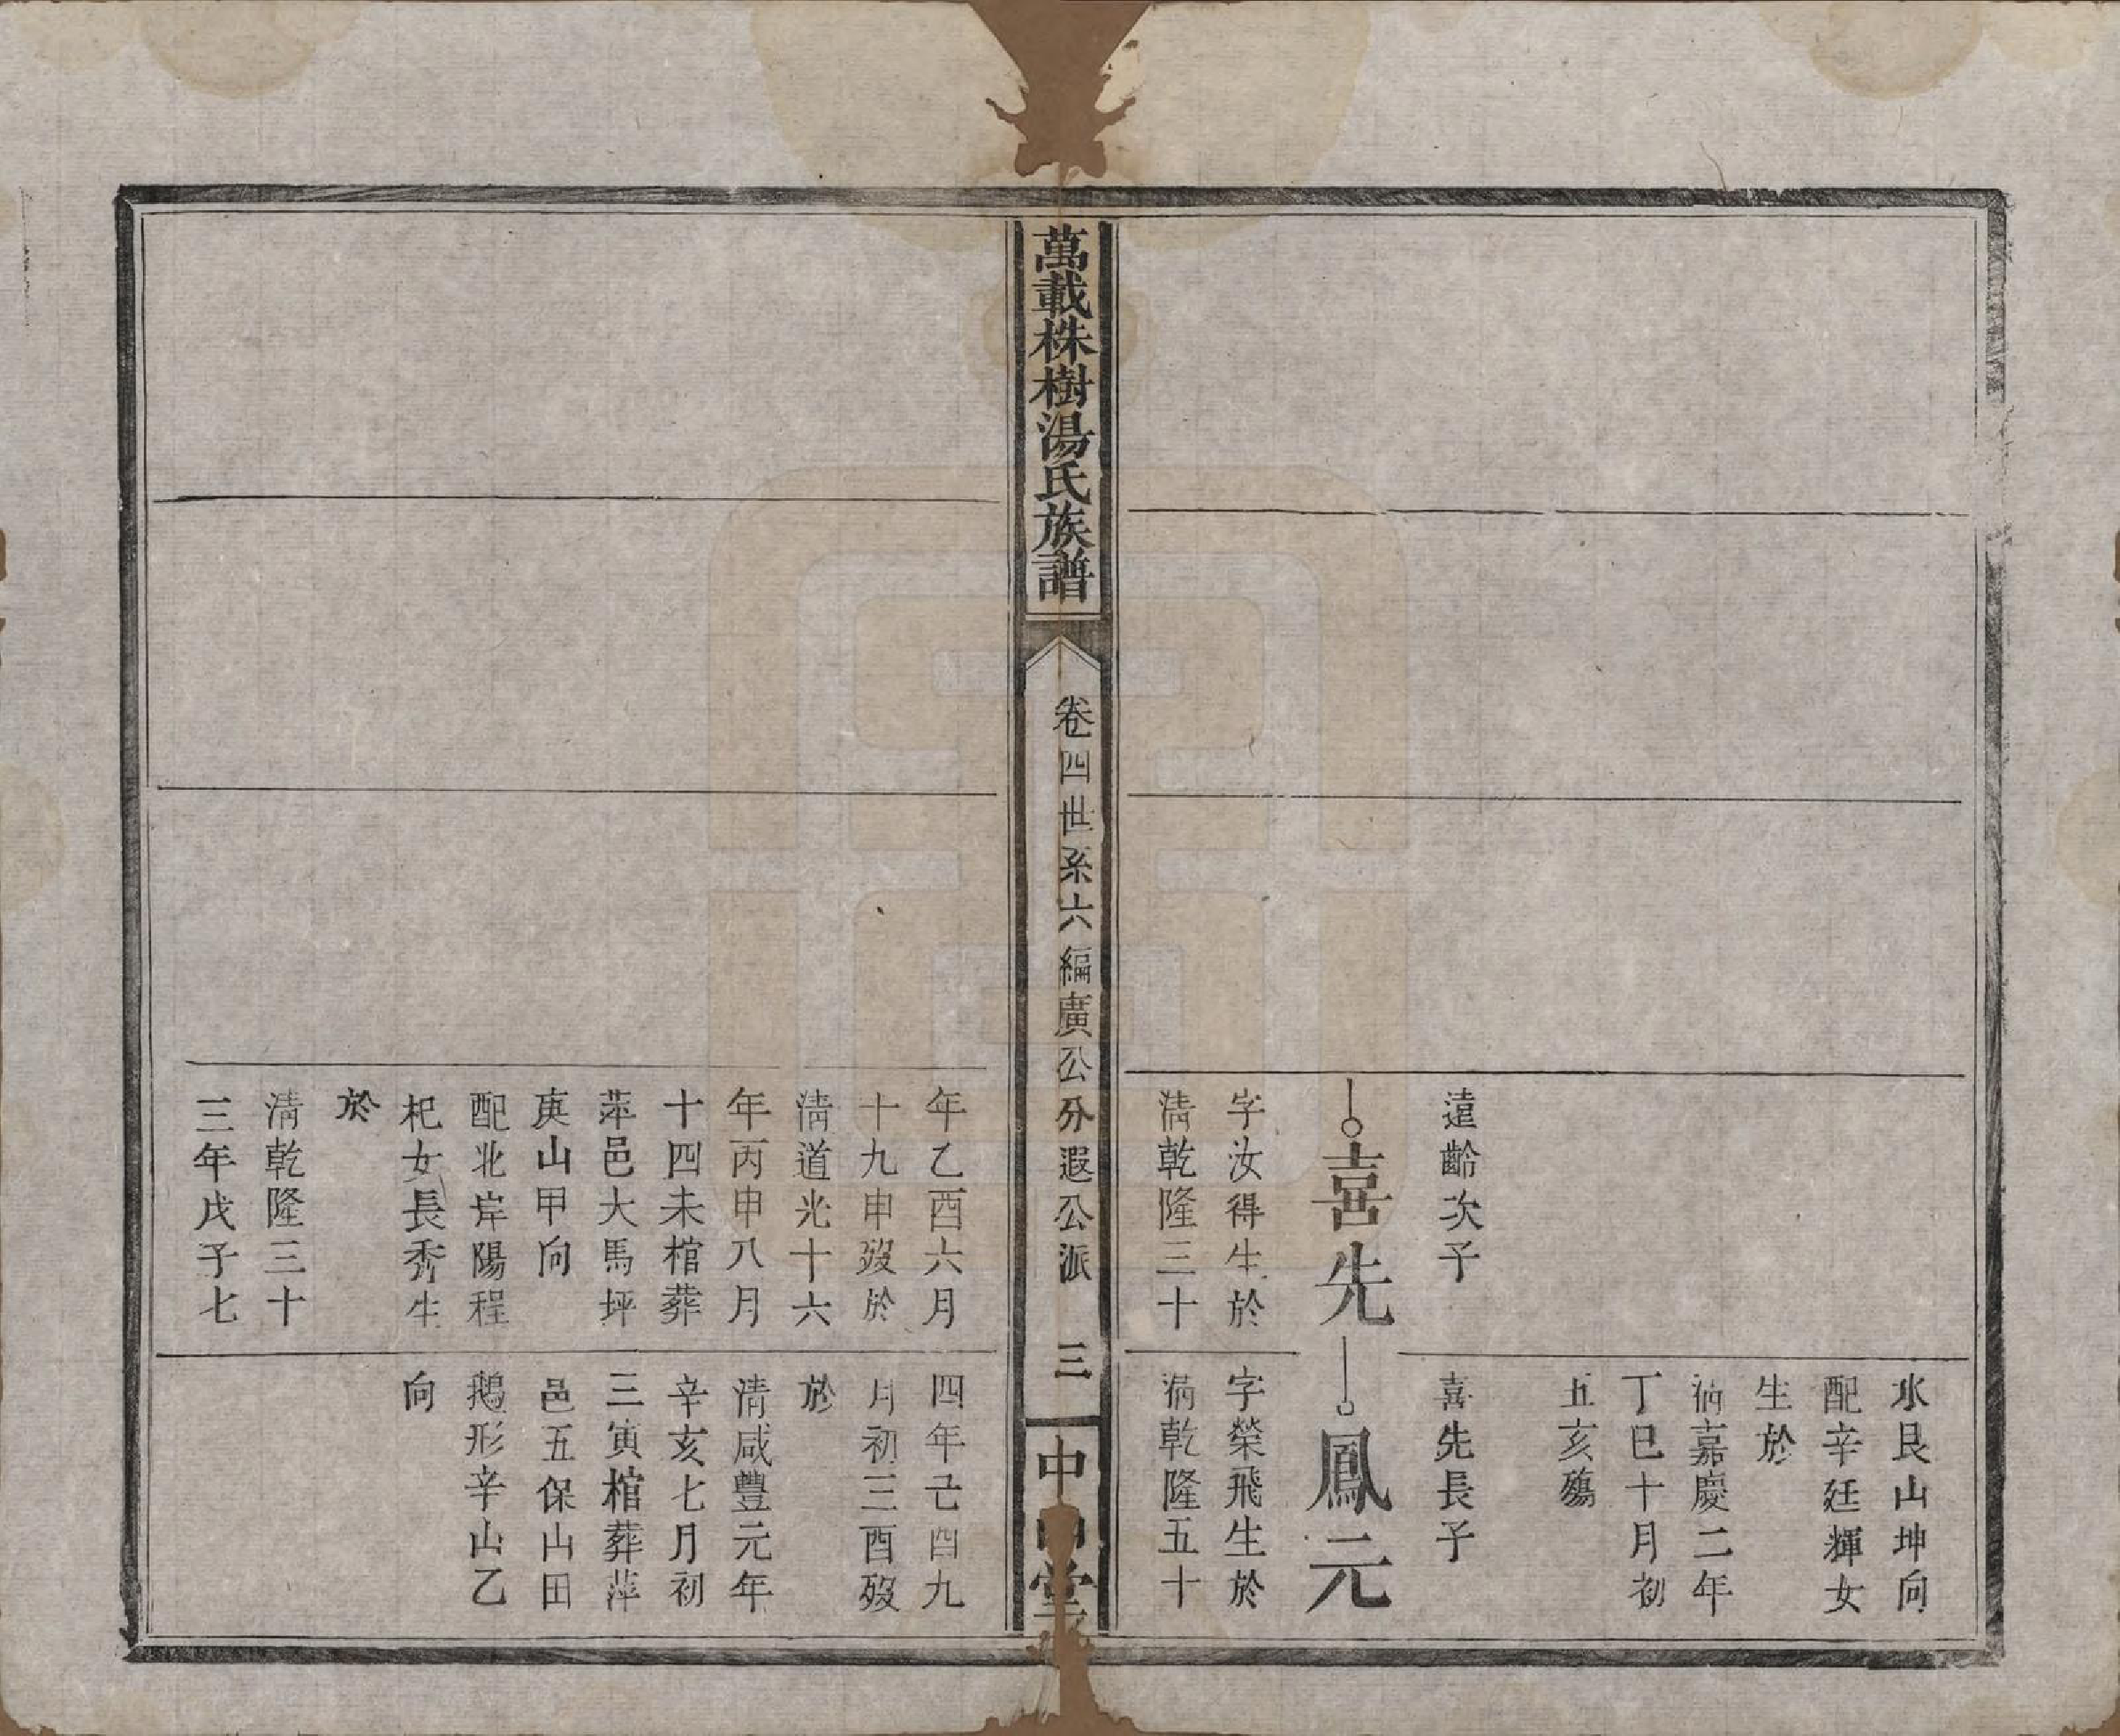 水艮山坤向
配辛廷輝女
生於
清嘉慶二年
丁巳十月初
五亥殤
遠齡次子
喜先
字汝得生於
清乾隆三十
喜先長子
鳳元
字榮飛生於
清乾隆五十
萬載株樹湯氏族譜
卷四世系六編廣公分遐公派
三
中山堂
年乙酉六月
十九申歿於
清道光十六
年丙申八月
十四未棺葬
萍邑大馬坪
庚山甲向
配北岸陽程
杞女長秀生
於
清乾隆三十
三年戊子七
四年己酉九
月初三酉歿
於
清咸豐元年
辛亥七月初
三寅棺葬萍
邑五保山田
鵝形辛山乙
向